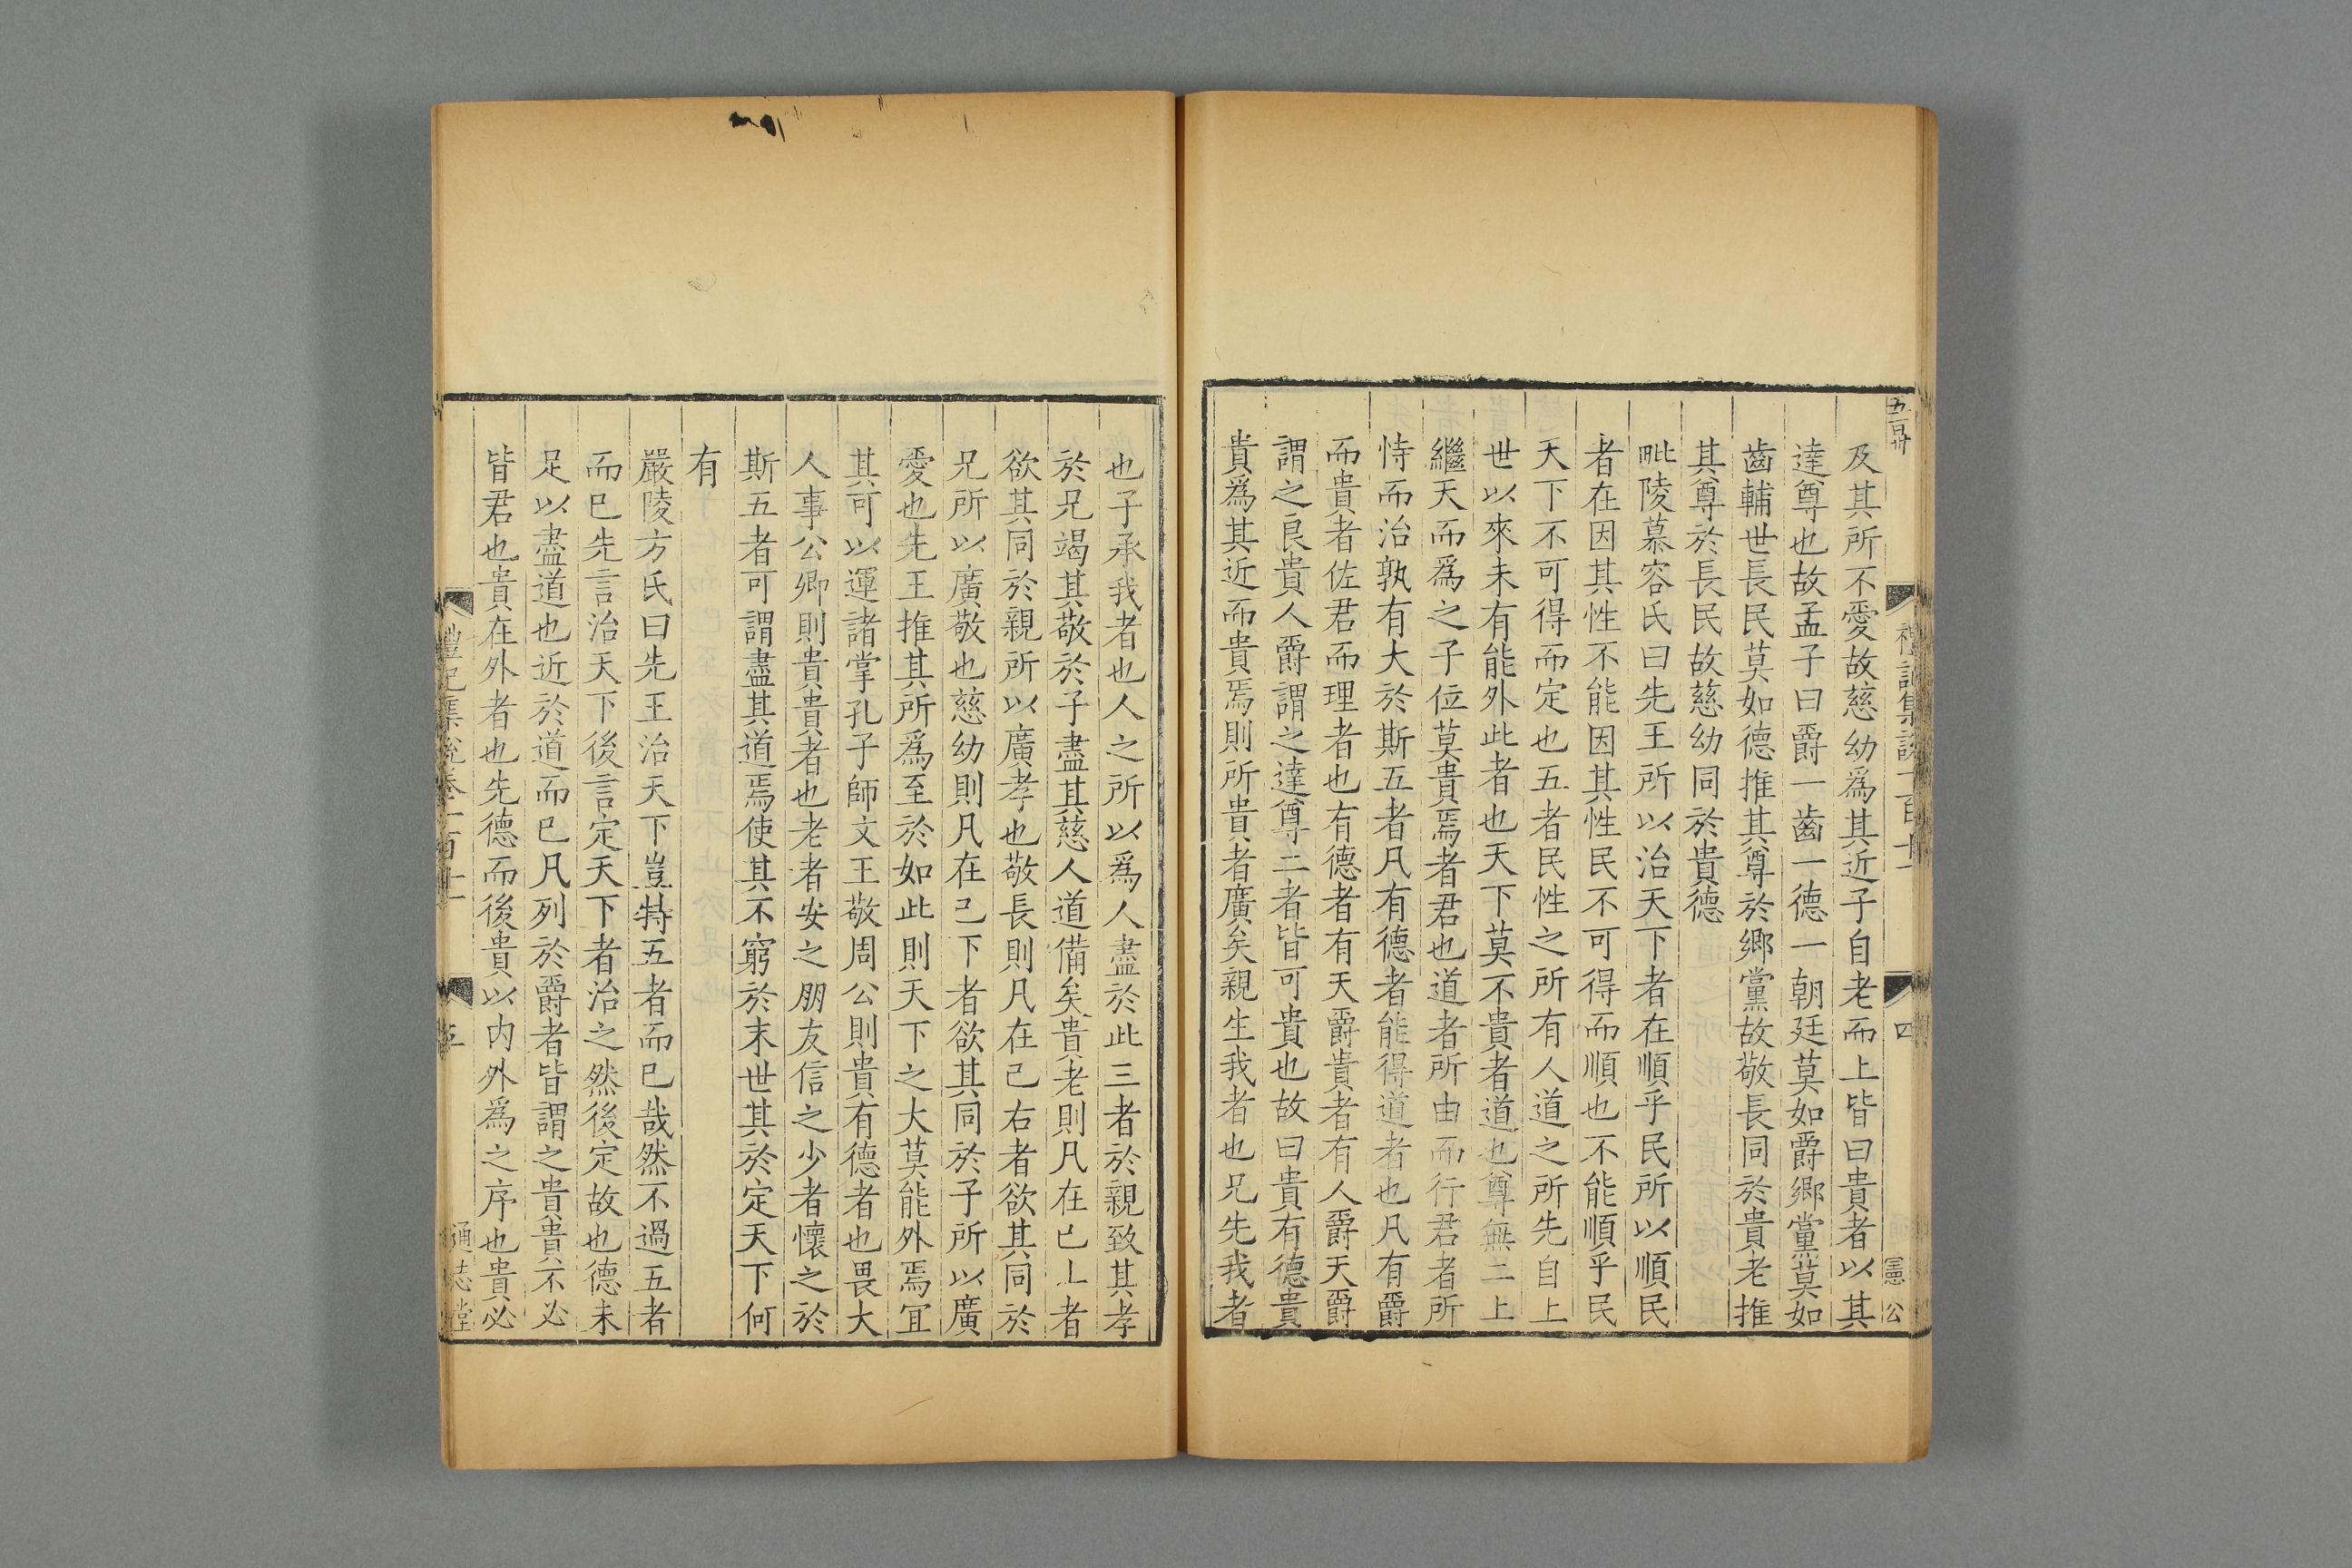 五百卅
禮記集說一百十一
四
憲 公
及其所不愛故慈幼爲其近子自老而上皆曰貴者以其
達尊也故孟子曰爵一齒一德一朝廷莫如爵鄉黨莫如
齒輔世長民莫如德推其尊於鄉黨故敬長同於貴老推
其尊於長民故慈幼同於貴德
毗陵慕容氏曰先王所以治天下者在順乎民所以順民
者在因其性不能因其性民不可得而順也不能順乎民
天下不可得而定也五者民性之所有人道之所先自上
世以來未有能外此者也天下莫不貴者道也尊無二上
繼天而爲之子位莫貴焉者君也道者所由而行君者所
恃而治孰有大於斯五者凡有德者能得道者也凡有爵
而貴者佐君而理者也有德者有天爵貴者有人爵天爵
謂之良貴人爵謂之達尊二者皆可貴也故曰貴有德貴
貴爲其近而貴焉則所貴者廣矣親生我者也兄先我者
也子承我者也人之所以爲人盡於此三者於親致其孝
於兄竭其敬於子盡其慈人道備矣貴老則凡在己上者
欲其同於親所以廣孝也敬長則凡在己右者欲其同於
兄所以廣敬也慈幼則凡在己下者欲其同於子所以廣
愛也先王推其所爲至於如此則天下之大莫能外焉宜
其可以運諸掌孔子師文王敬周公則貴有德者也畏大
人事公卿則貴貴者也老者安之朋友信之少者懷之於
斯五者可謂盡其道焉使其不窮於末世其於定天下何
有
嚴陵方氏曰先王治天下豈特五者而已哉然不過五者
而已先言治天下後言定天下者治之然後定故也德未
足以盡道也近於道而已凡列於爵者皆謂之貴貴不必
皆君也貴在外者也先德而後貴以内外爲之序也貴必
禮記集說卷一百十一
五
通志堂